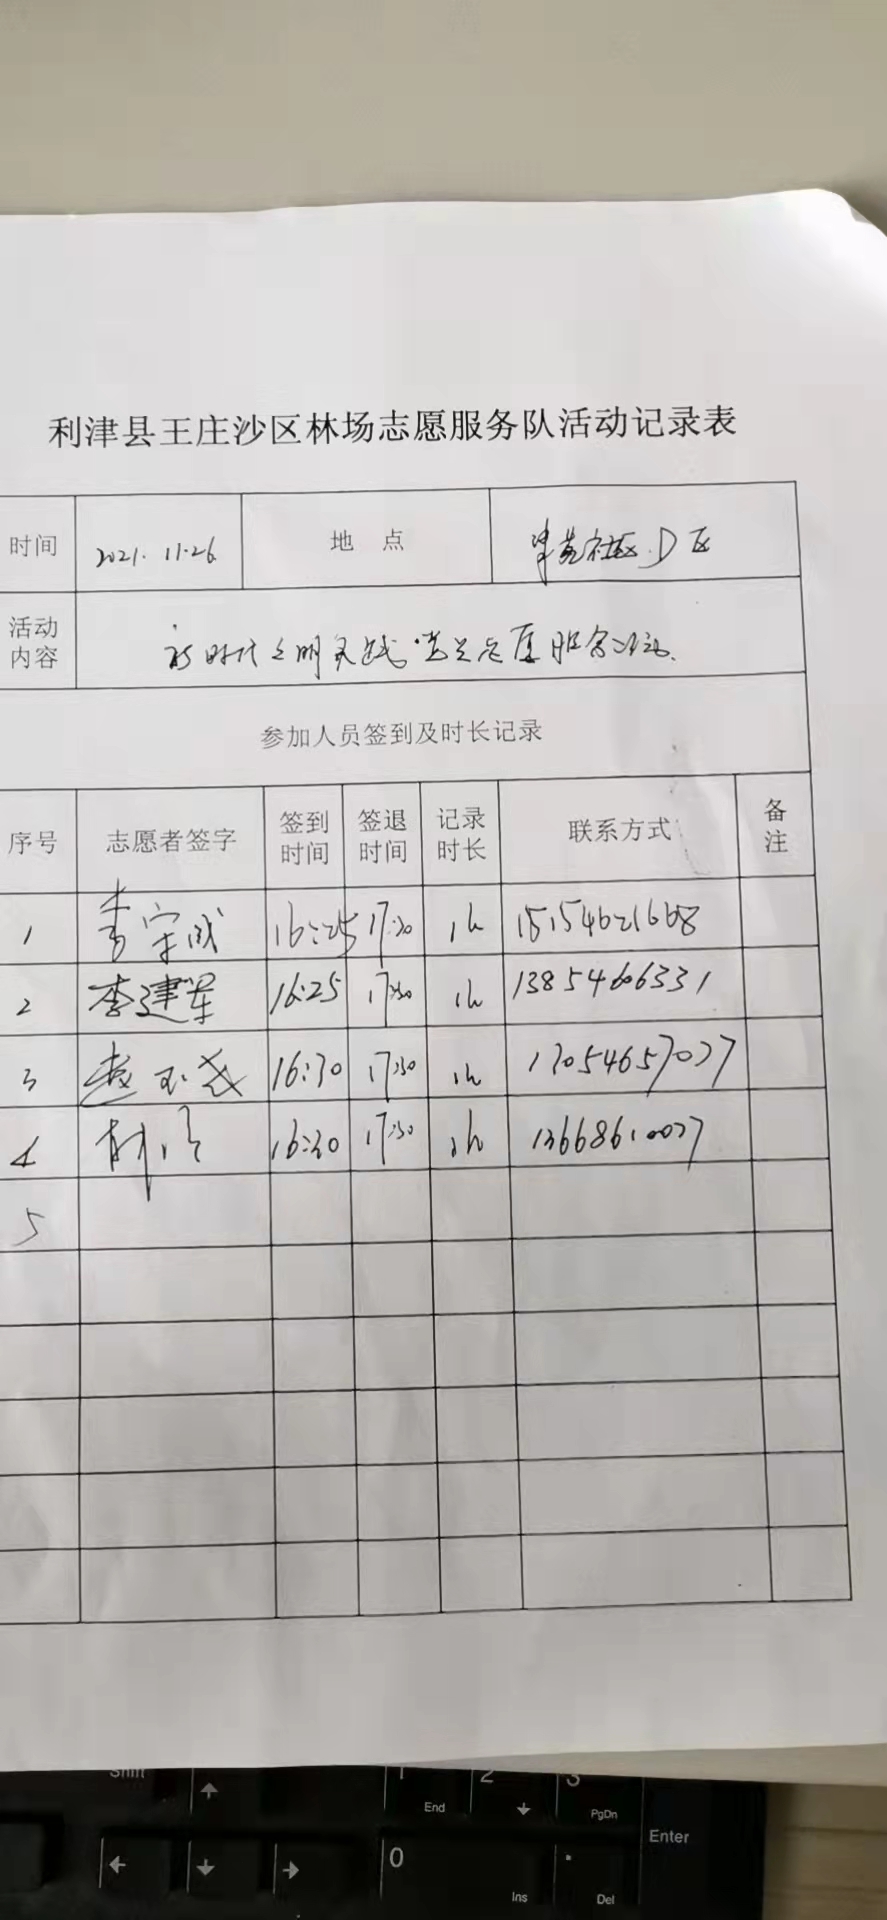 利津县王庄沙区林场志愿服务队活动记录表
时间 2021.11.26 地 点 津苑社区D区
活动内容 新时代文明实践 志愿服务活动.
参加人员签到及时长记录
序号 志愿者签字 签到时间 签退时间 记录时长 联系方式 备注
1 李宗成 16:25 17:30 1h 15154621668
2 李建军 16:25 17:30 1h 13854606331
3 赵玉 16:30 17:30 1h 13054657077
4 16:30 17:30 1h 13668610077
5
Shift 1 End 2 3 PgDn
Enter
0 Ins . Del